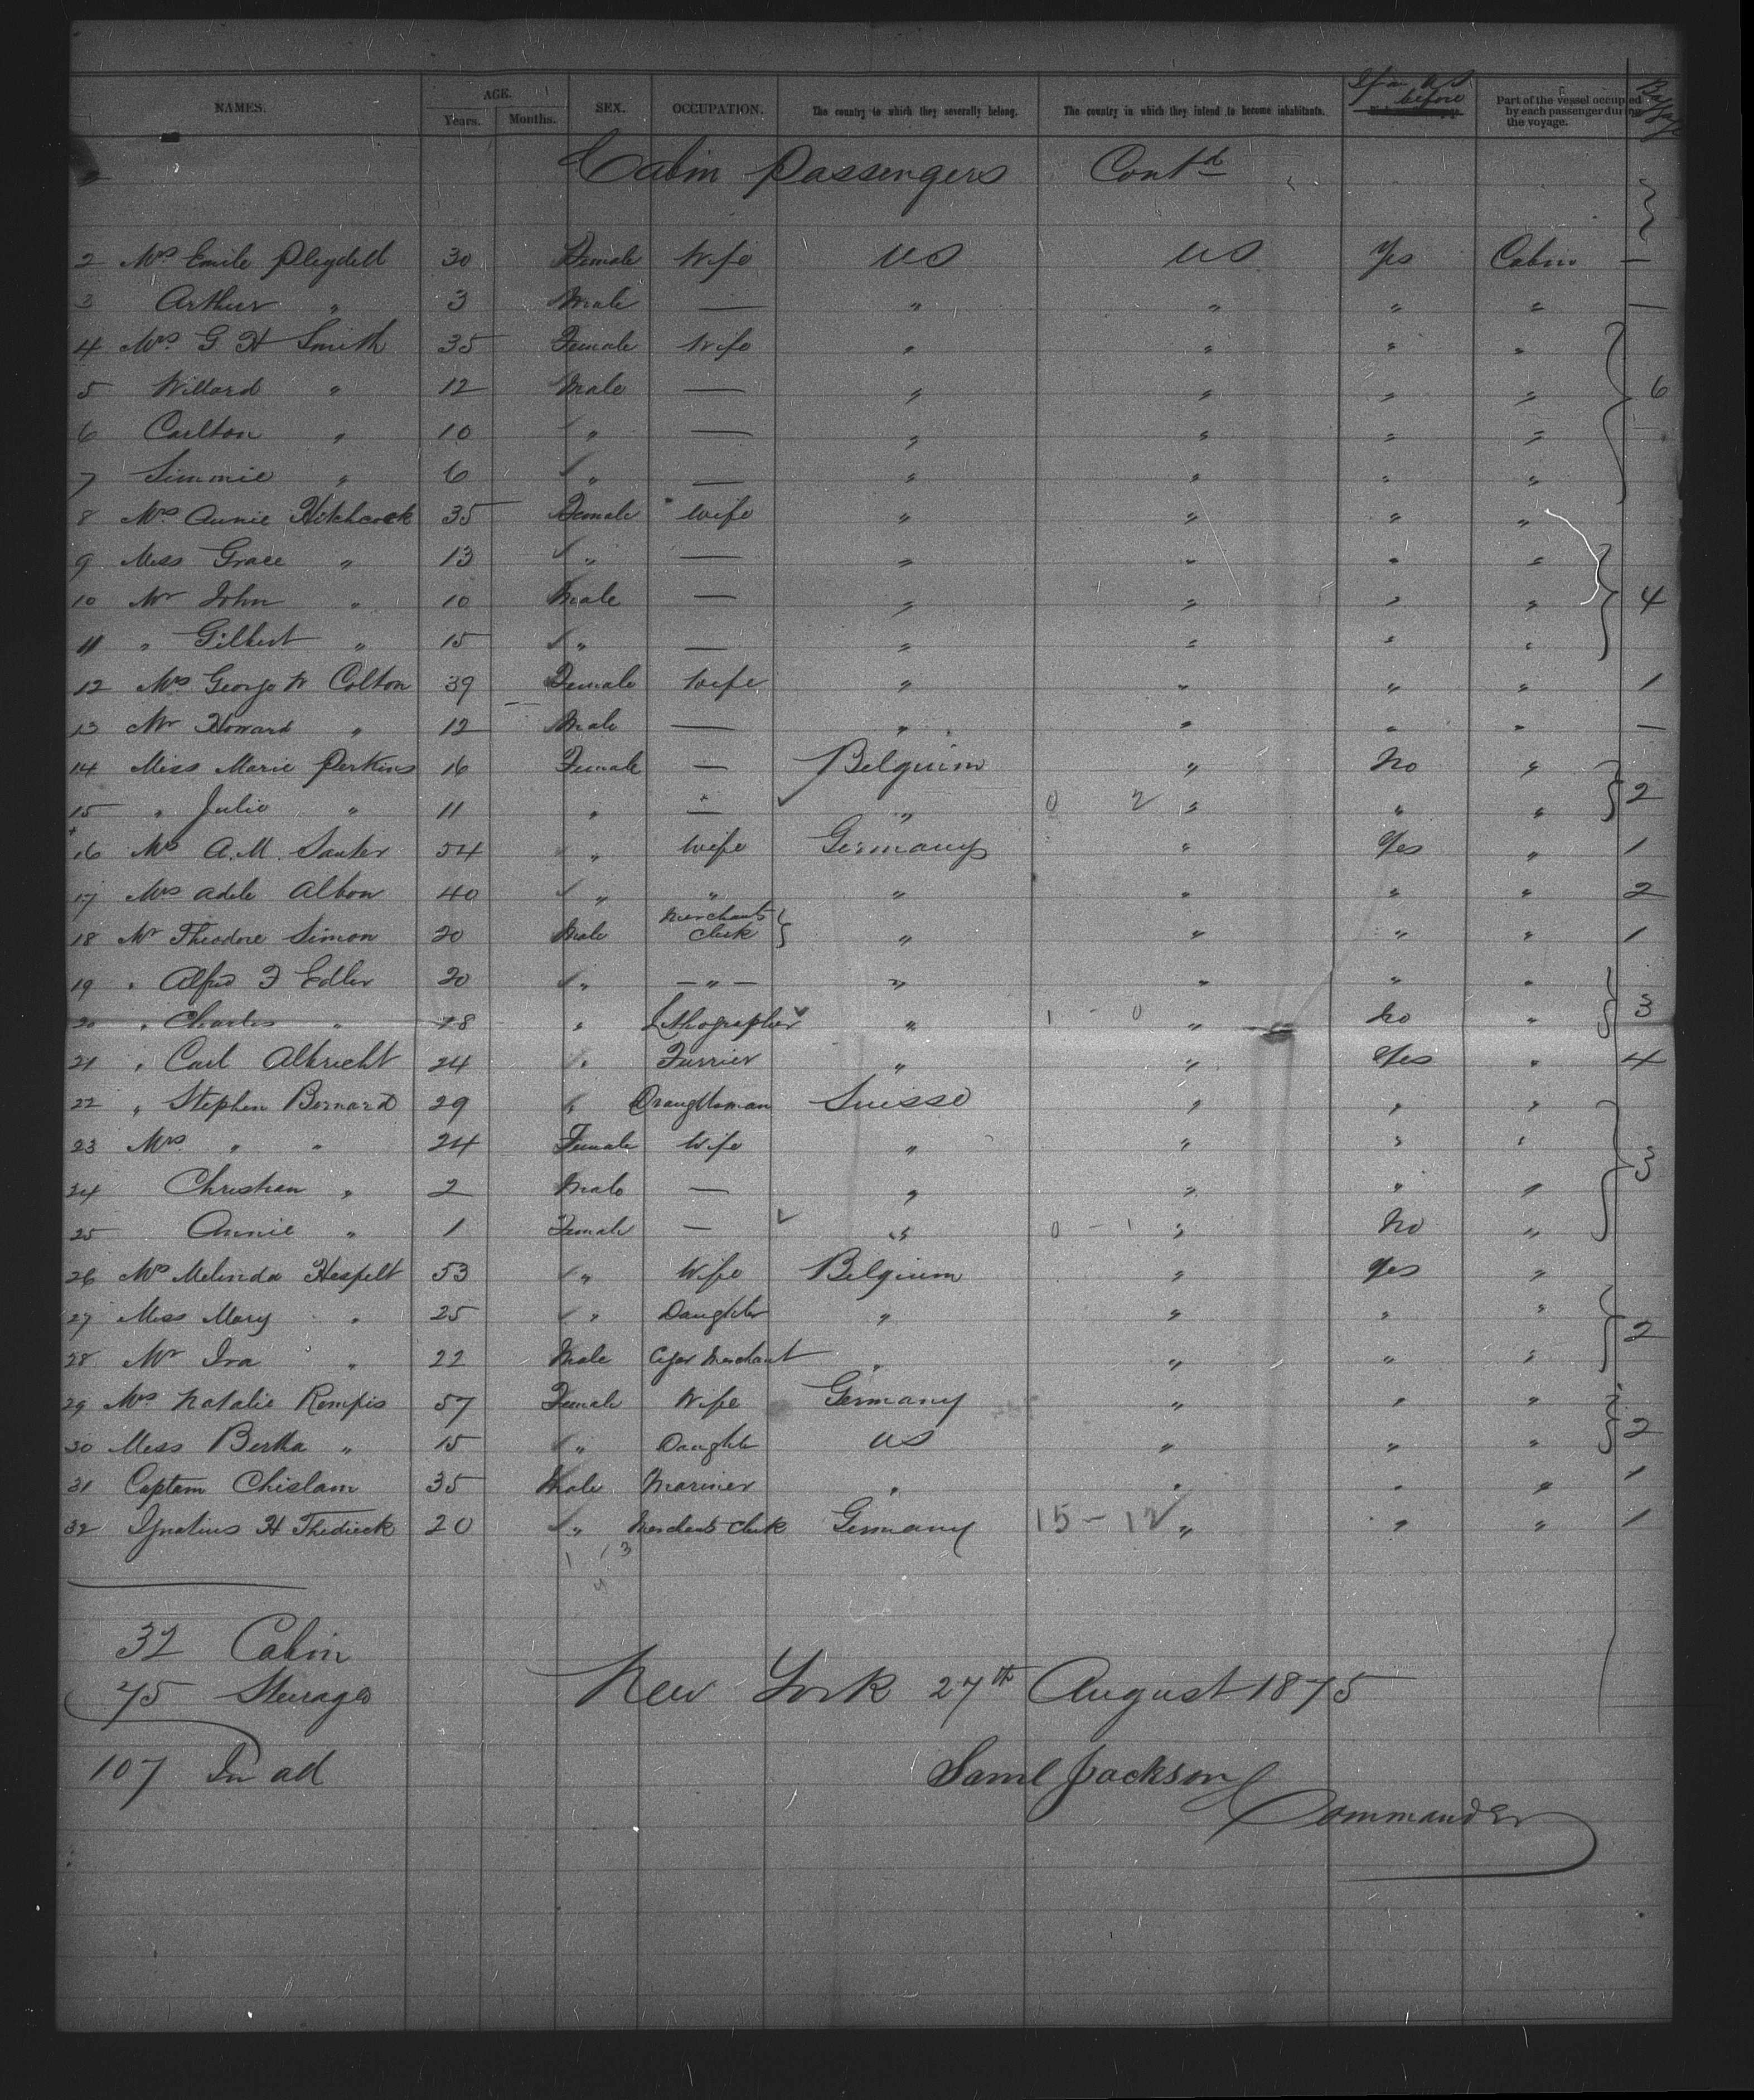 NAMES. AGE. Years. Months. SEX. OCCUPATION. The country to which they severally belong. The country in which they intend to become inhabitants. If in US before Part of the vessel occupied by each passenger during the voyage. Baggage
Cabin Passengers Contd
2 Mrs Emile Pleydell 30 Female Wife US US Yes Cabin —
3 Arthur " 3 Male — " " " " —
4 Mrs. G H Smith 35 Female Wife " " " "
5 Willard " 12 Male — " " " " 6
6 Carlton " 10 " — " " " "
7 Simmie " 6 " — " " " "
8 Mrs Annie Hitchcock 35 Female wife " " " "
9 Miss Grace " 13 " — " " " "
10 Mr John " 10 Male — " " " " 4
11 " Gilbert " 15 " — " " " "
12 Mrs George W Colton 39 Female Wife " " " " 1
13 Mr Howard " 12 Male — " " " " —
14 Miss Marie Perkins 16 Female — Belguim " No "
15 " Julie " 11 " — " 0 2 " " " 2
16 Mrs A. M. Sauter 54 " Wife Germany " Yes " 1
17 Mrs Adele Albon 40 " " " " " " 2
18 Mr Theodore Simon 20 Male Merchants Clerk " " " " 1
19 " Alfred F Edler 20 " — " — " " " "
20 " Charles " 28 " Lithographer " 1 - 0 " No " 3
21 " Carl Albrecht 24 " Furrier " " Yes " 4
22 " Stephen Bernard 29 " Draughtsman Suisse " " "
23 Mrs " " 24 Female Wife " " " "
24 Christian " 2 Male — " " " " 3
25 Annie " 1 Female — " 0 - 1 " No "
26 Mrs Melinda Hespelt 53 " Wife Belgium " Yes "
27 Miss Mary " 25 " Daughter " " " "
28 Mr Ira " 22 Male Cigar Merchant " " " " 2
29 Mrs Natalie Rempis 57 Female Wife Germany " " "
30 Miss Bertha " 15 " Daughter US " " " 2
31 Captem Chislam 35 Male Mariner " " " " 1
32 Ignatius H Thedieck 20 " Merchants Clerk Germany 15 - 12 " " " 1
1 / 3
32 Cabin
75 Steerage
New York 27th August 1875
107 In all
Saml Jackson
Commander